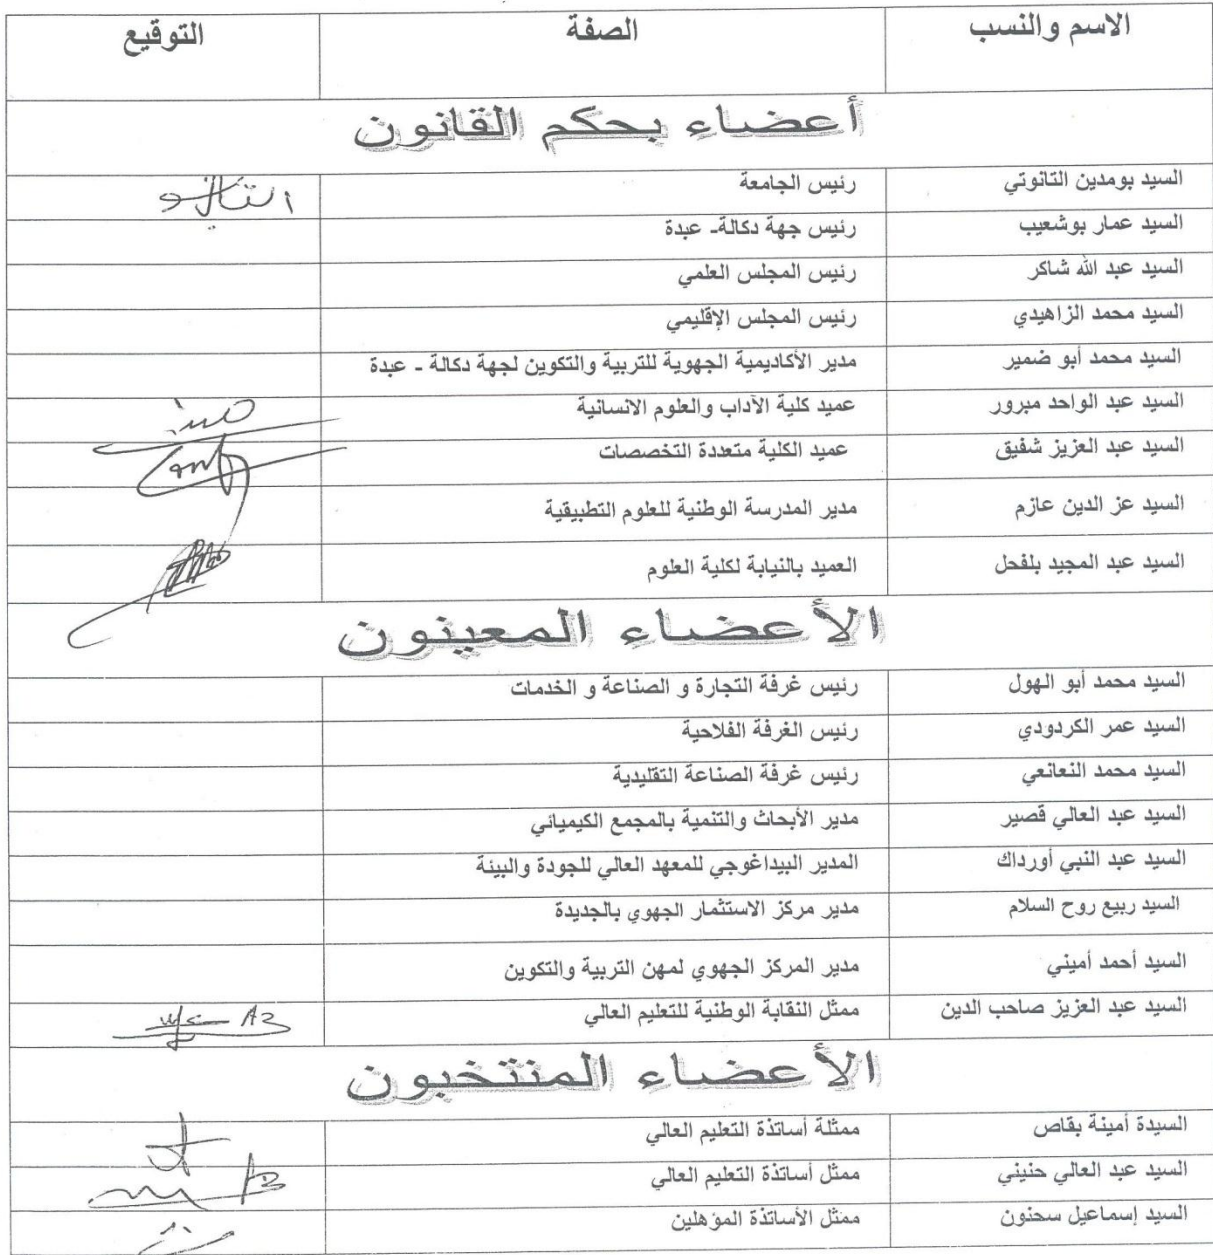 الاسم والنسب الصفة التوقيع
أعضاء بحكم القانون
السيد بومدين التانوتي رئيس الجامعة
السيد عمار بوشعيب رئيس جهة دكالة- عبدة
السيد عبد الله شاكر رئيس المجلس العلمي
السيد محمد الزاهيدي رئيس المجلس الإقليمي
السيد محمد أبو ضمير مدير الأكاديمية الجهوية للتربية والتكوين لجهة دكالة - عبدة
السيد عبد الواحد مبرور عميد كلية الآداب والعلوم الانسانية
السيد عبد العزيز شفيق عميد الكلية متعددة التخصصات
السيد عز الدين عازم مدير المدرسة الوطنية للعلوم التطبيقية
السيد عبد المجيد بلفحل العميد بالنيابة لكلية العلوم
الأعضاء المعينون
السيد محمد أبو الهول رئيس غرفة التجارة و الصناعة و الخدمات
السيد عمر الكردودي رئيس الغرفة الفلاحية
السيد محمد النعانعي رئيس غرفة الصناعة التقليدية
السيد عبد العالي قصير مدير الأبحاث والتنمية بالمجمع الكيميائي
السيد عبد النبي أورداك المدير البيداغوجي للمعهد العالي للجودة والبيئة
السيد ربيع روح السلام مدير مركز الاستثمار الجهوي بالجديدة
السيد أحمد أميني مدير المركز الجهوي لمهن التربية والتكوين
السيد عبد العزيز صاحب الدين ممثل النقابة الوطنية للتعليم العالي
الأعضاء المنتخبون
السيدة أمينة بقاص ممثلة أساتذة التعليم العالي
السيد عبد العالي حنيني ممثل أساتذة التعليم العالي
السيد إسماعيل سحنون ممثل الأساتذة المؤهلين